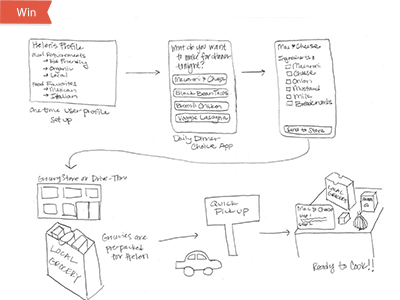 Win
Helen's Profile
Meal Requirements
→ Kid Friendly
→ Organic
→ Local
Food Favorites
→ Mexican
→ Italian
One time user profile
set up
What do you want
to make for dinner
tonight?
Macaroni & Cheese
Black Bean Tacos
Baked Chicken
Veggie Lasagna
Daily Dinner
Choice App
Mac & Cheese
Ingredients
Macaroni
Cheese
Onion
Mustard
Milk
Breadcrumbs
Send to Store
Grocery Store or Drive-Thru
LOCAL
GROCERY
Groceries are
pre-packed
for Helen
QUICK
PICK UP
LOCAL
GROCERY
Mac & Cheese
Ready to Cook!!